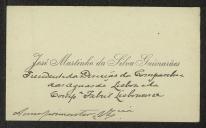 José Martinho da Silva Guimarães
Presidente da Direcção da Companhia
das Aguas de Lisboa e da
Comp.ª Fabril Lisbonense